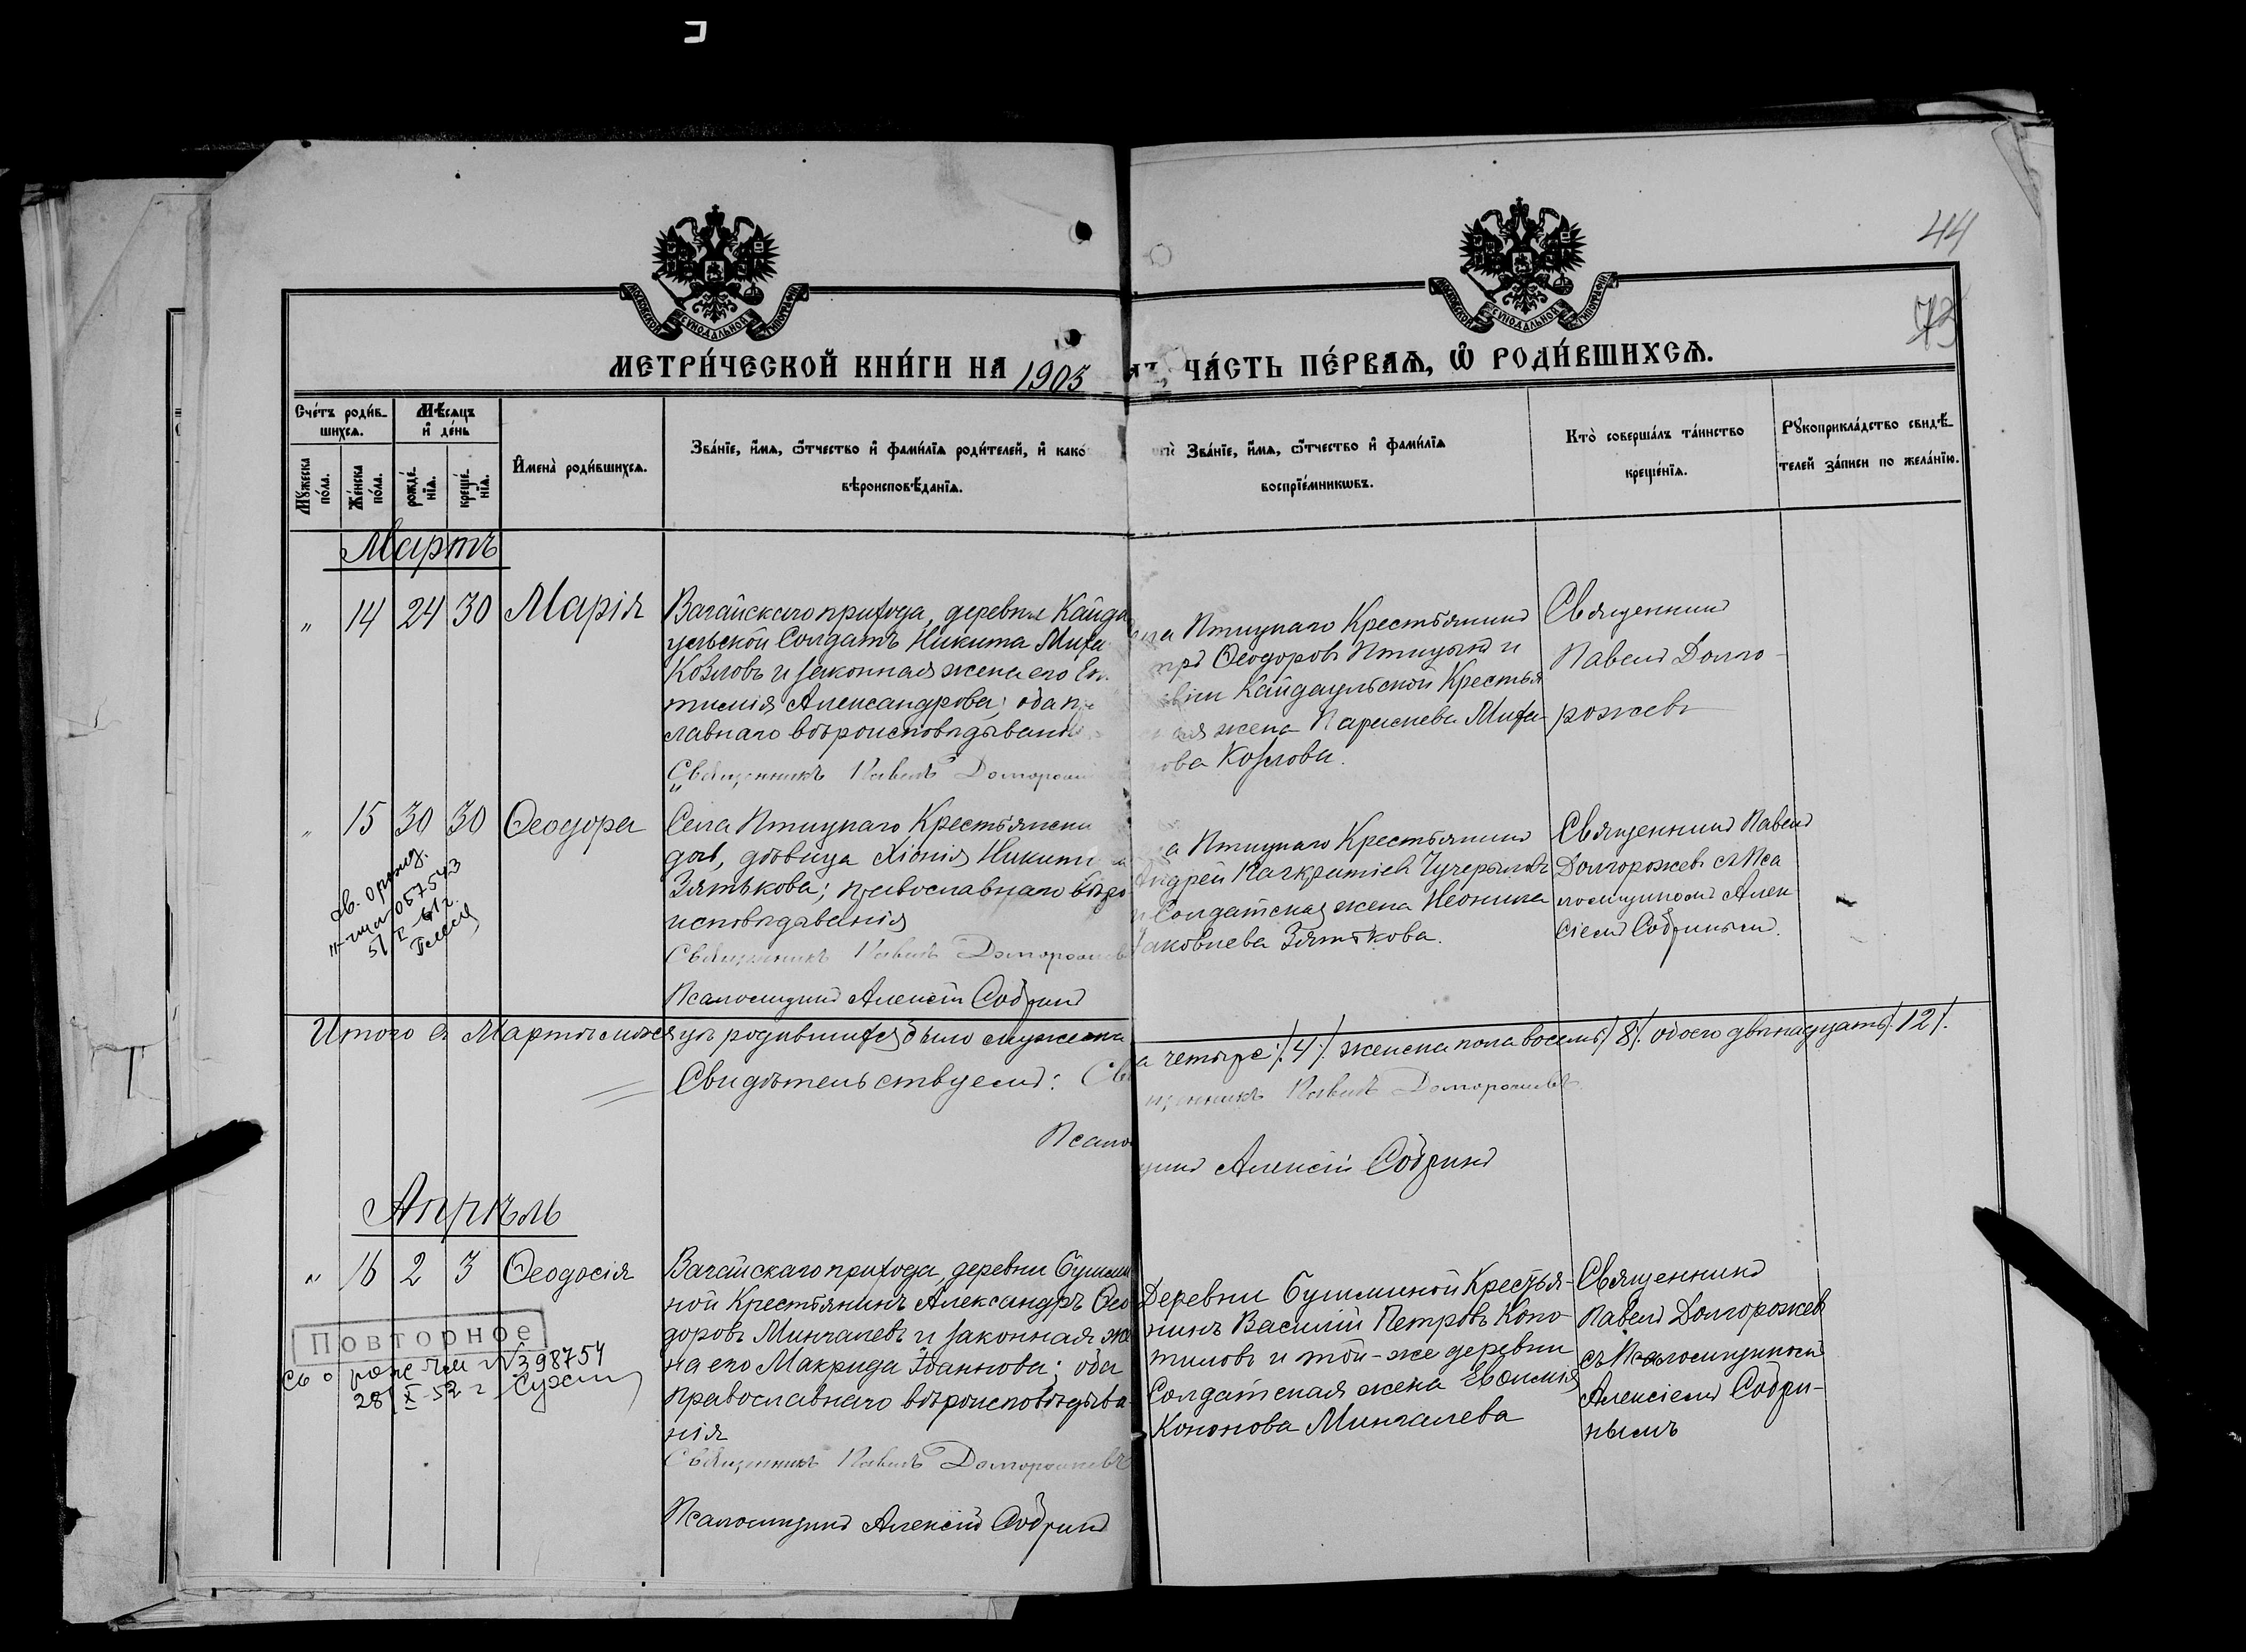 44
73
МЕТРИ́ЧЕСКОЙ КНИ́ГИ НА 1903
ЧА́СТЬ ПЕ́РВАѦ, Ѽ РОДИ́ВШИХСѦ.
Сче́тъ роди́в-
шихсѧ.
Мꙋ́жеска по́ла.
Же́нска по́ла.
Мѣ́сѧцъ
и҆ де́нь
рожде́-
нїѧ.
креще́-
нїѧ.
И҆мена̀ роди́вшихсѧ.
Зва́нїе, и҆́мѧ, ѻ҆́тчество и҆ фами́лїѧ роди́телей, и҆ како́
вѣроисповѣ́данїѧ.
Зва́нїе, и҆́мѧ, ѻ҆́тчество и҆ фами́лїѧ
воспрїе́мникѡвъ.
Кто̀ соверша́лъ та́инство
креще́нїѧ.
Рꙋкоприкла́дство свидѣ́-
телей за́писи по жела́нїю.
Мартъ
" 14 24 30 Марія
Вагайскаго прихода, деревни Кайда
ульской Солдатъ Никита Миха
Козловъ и законная жена его Ев
тимія Александрова; оба п
славнаго вѣроисповѣдыван
Священникъ Павелъ Долгорож
Птицкаго Крестьянинъ
Ѳеодоровъ Птицынъ и
Кайдаульской Крестья
жена Параскева Миха-
ова Козлова.
Священникъ
Павелъ Долго-
рожевъ
" 15 30 30 Ѳеодора
Села Птицкаго Крестьянски
дочь, дѣвица Хіонія Никити
Зятькова; православнаго вѣро
исповѣдаванія
Священникъ Павелъ Долгорожев
Псаломщикъ Алексій Собринъ
а Птицкаго Крестьянинъ
Андрей Панкратіевъ Чучерыловъ
и Солдатская жена Неонила
Іаковлева Зятькова.
Священникъ Павелъ
Долгорожевъ съ Пса
ломщикомъ Алек
сіемъ Собринымъ.
св. о рожд.
057543
Итого въ Мартѣ мѣсяцѣ родившихся было мужеска
а четыре /:4:/ женска пола восемь /:8:/ обоего двѣнадцать /:12:/.
Свидѣтельствуемъ: Свя
щенникъ Павелъ Долгорожевъ
Псалом
щикъ Алексій Собринъ
Апрѣль
" 16 2 3 Ѳеодосія
Вагайскаго прихода, деревни Бушми
ной Крестьянинъ Александръ Ѳео
доровъ Мингалевъ и законная же
на его Макрида Іоаннова; оба
православнаго вѣроисповѣдыва
нія
Священникъ Павелъ Долгорожевъ
Псаломщикъ Алексій Собринъ
Деревни Бушминой Крестья-
нинъ Василій Петровъ Копо-
тиловъ и той-же деревни
Солдатская жена Евѳимія
Кононова Мингалева
Священникъ
Павелъ Долгорожев
съ Псаломщикомъ
Алексіемъ Собри-
нымъ
Повторное
св о рожд №398754
28/X-52 г